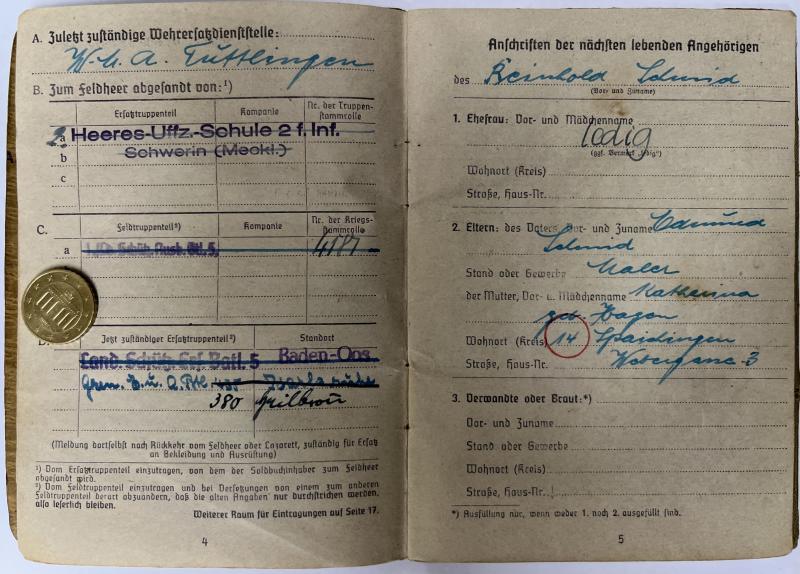 A. Zuletzt zuständige Wehrersatzdienststelle:
W. M. A. Tuttlingen
B. Zum Feldheer abgesandt von:¹)
Ersatztruppenteil
Kompanie
Nr. der Truppenstammrolle
a
Heeres-Uffz.-Schule 2 f. Inf.
b
Schwerin (Meckl.)
c
C.
Feldtruppenteil²)
Kompanie
Nr. der Kriegsstammrolle
a
Schütz. Ausb. Btl. 5
Jetzt zuständiger Ersatztruppenteil²)
Standort
Land. Schütz. Ers. Batl. 5
Baden-Oos
Gren. E. u. A. Btl.
Karlsruhe
380 Heilbronn
(Meldung dortselbst nach Rückkehr vom Feldheer oder Lazarett, zuständig für Ersatz
an Bekleidung und Ausrüstung)
¹) Vom Ersatztruppenteil einzutragen, von dem der Soldbuchinhaber zum Feldheer
abgesandt wird.
²) Vom Feldtruppenteil einzutragen und bei Versetzungen von einem zum anderen
Feldtruppenteil derart abzuändern, daß die alten Angaben nur durchstrichen werden,
also leserlich bleiben.
Weiterer Raum für Eintragungen auf Seite 17.
4
Anschriften der nächsten lebenden Angehörigen
des Reinhold Schmid
(Vor- und Zuname)
1. Ehefrau: Vor- und Mädchenname
ledig
(ggf. Vermerk „ledig")
Wohnort (Kreis)
Straße, Haus-Nr.
2. Eltern: des Vaters, Vor- und Zuname Edmund
Schmid
Stand oder Gewerbe Maler
der Mutter, Vor- u. Mädchenname Katharina
geb. Hagen
Wohnort (Kreis) 14 Spaichingen
Straße, Haus-Nr.
3. Verwandte oder Braut:*)
Vor- und Zuname
Stand oder Gewerbe
Wohnort (Kreis)
Straße, Haus-Nr.
*) Ausfüllung nur, wenn weder 1. noch 2. ausgefüllt sind.
5